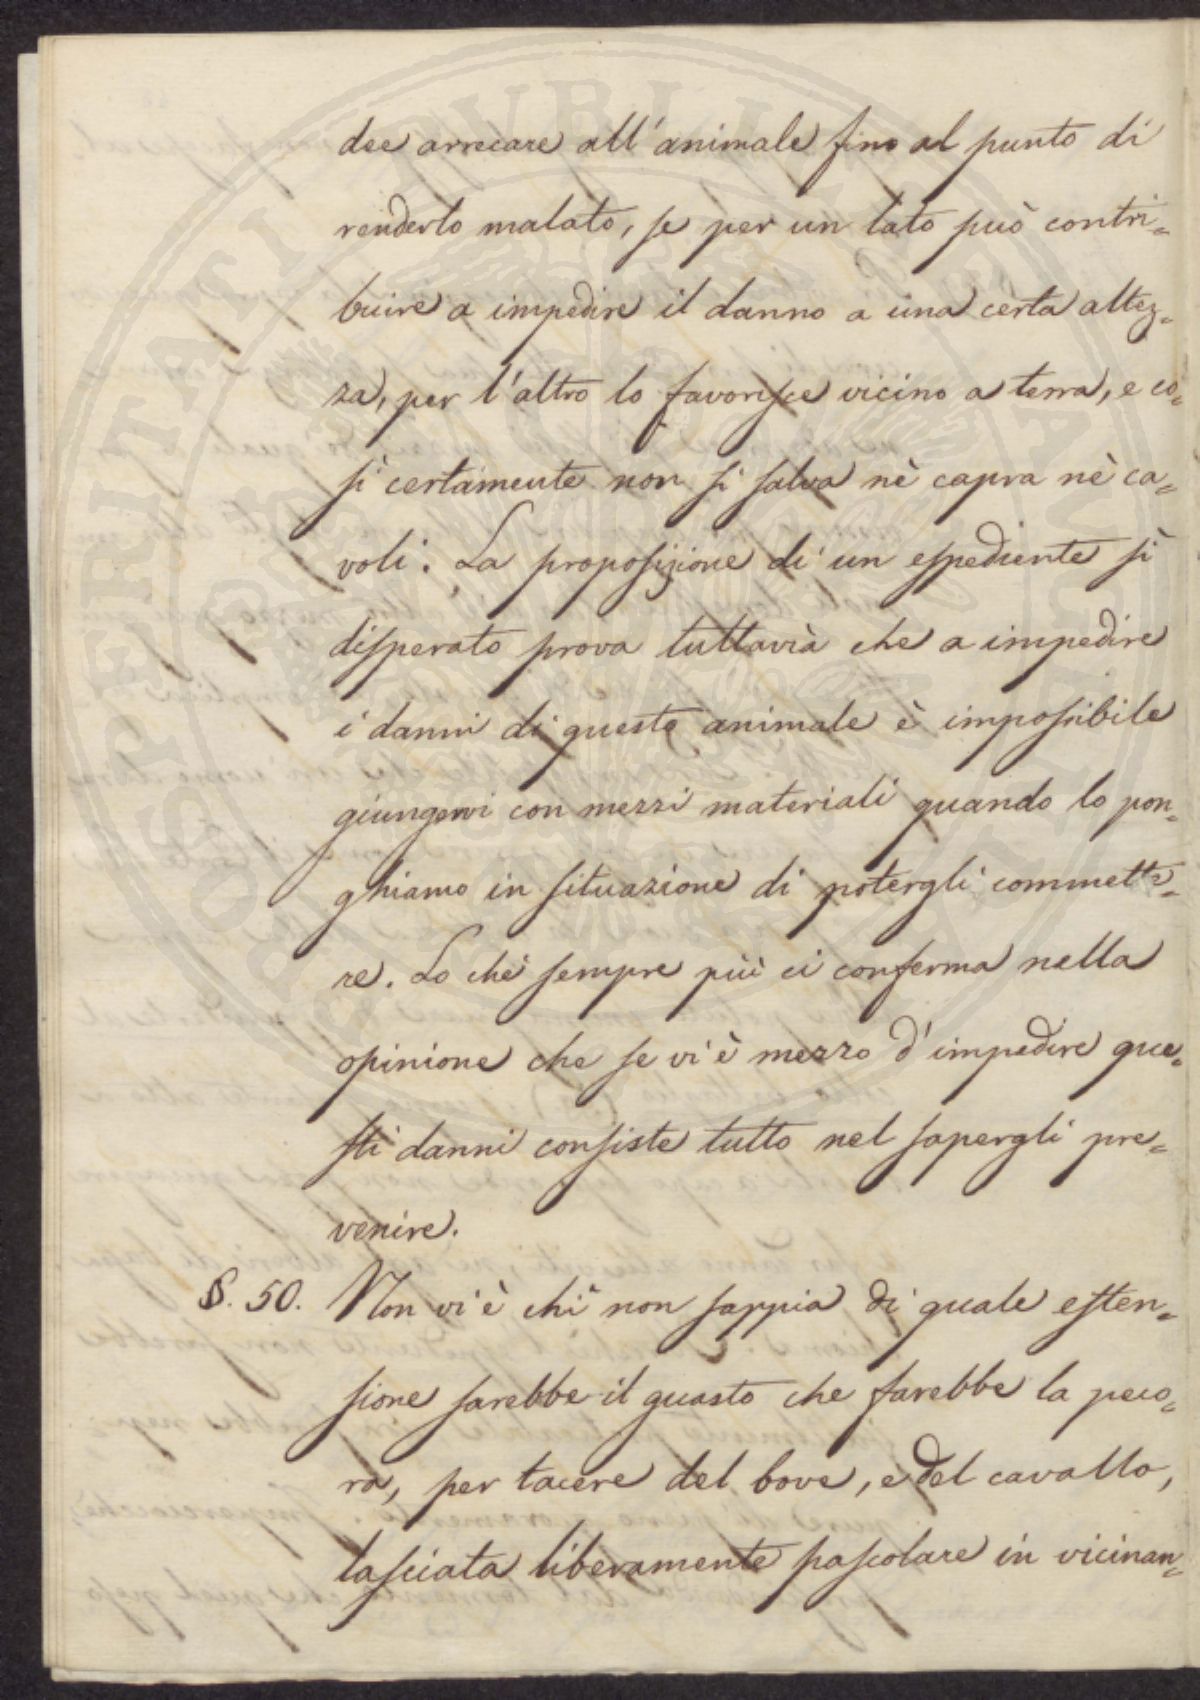 dee arrecare all'animale fino al punto di
renderlo malato, se per un lato può contri=
buire a impedire il danno a una certa altez=
za, per l'altro lo favorisce vicino a terra, e co=
sì certamente non si salva nè capra nè ca=
voli. La proposizione di un espediente sì
disperato prova tuttavia che a impedire
i danni di questo animale è impossibile
giungervi con mezzi materiali quando lo pon=
ghiamo in situazione di potergli commette=
re. Lo che sempre più ci conferma nella
opinione che se vi è mezzo d'impedire que=
sti danni consiste tutto nel sapergli pre=
venire.
§. 50. Non vi è chi non sappia di quale esten=
sione sarebbe il guasto che farebbe la peco=
ra, per tacere del bove, e del cavallo,
lasciata liberamente pascolare in vicinan=